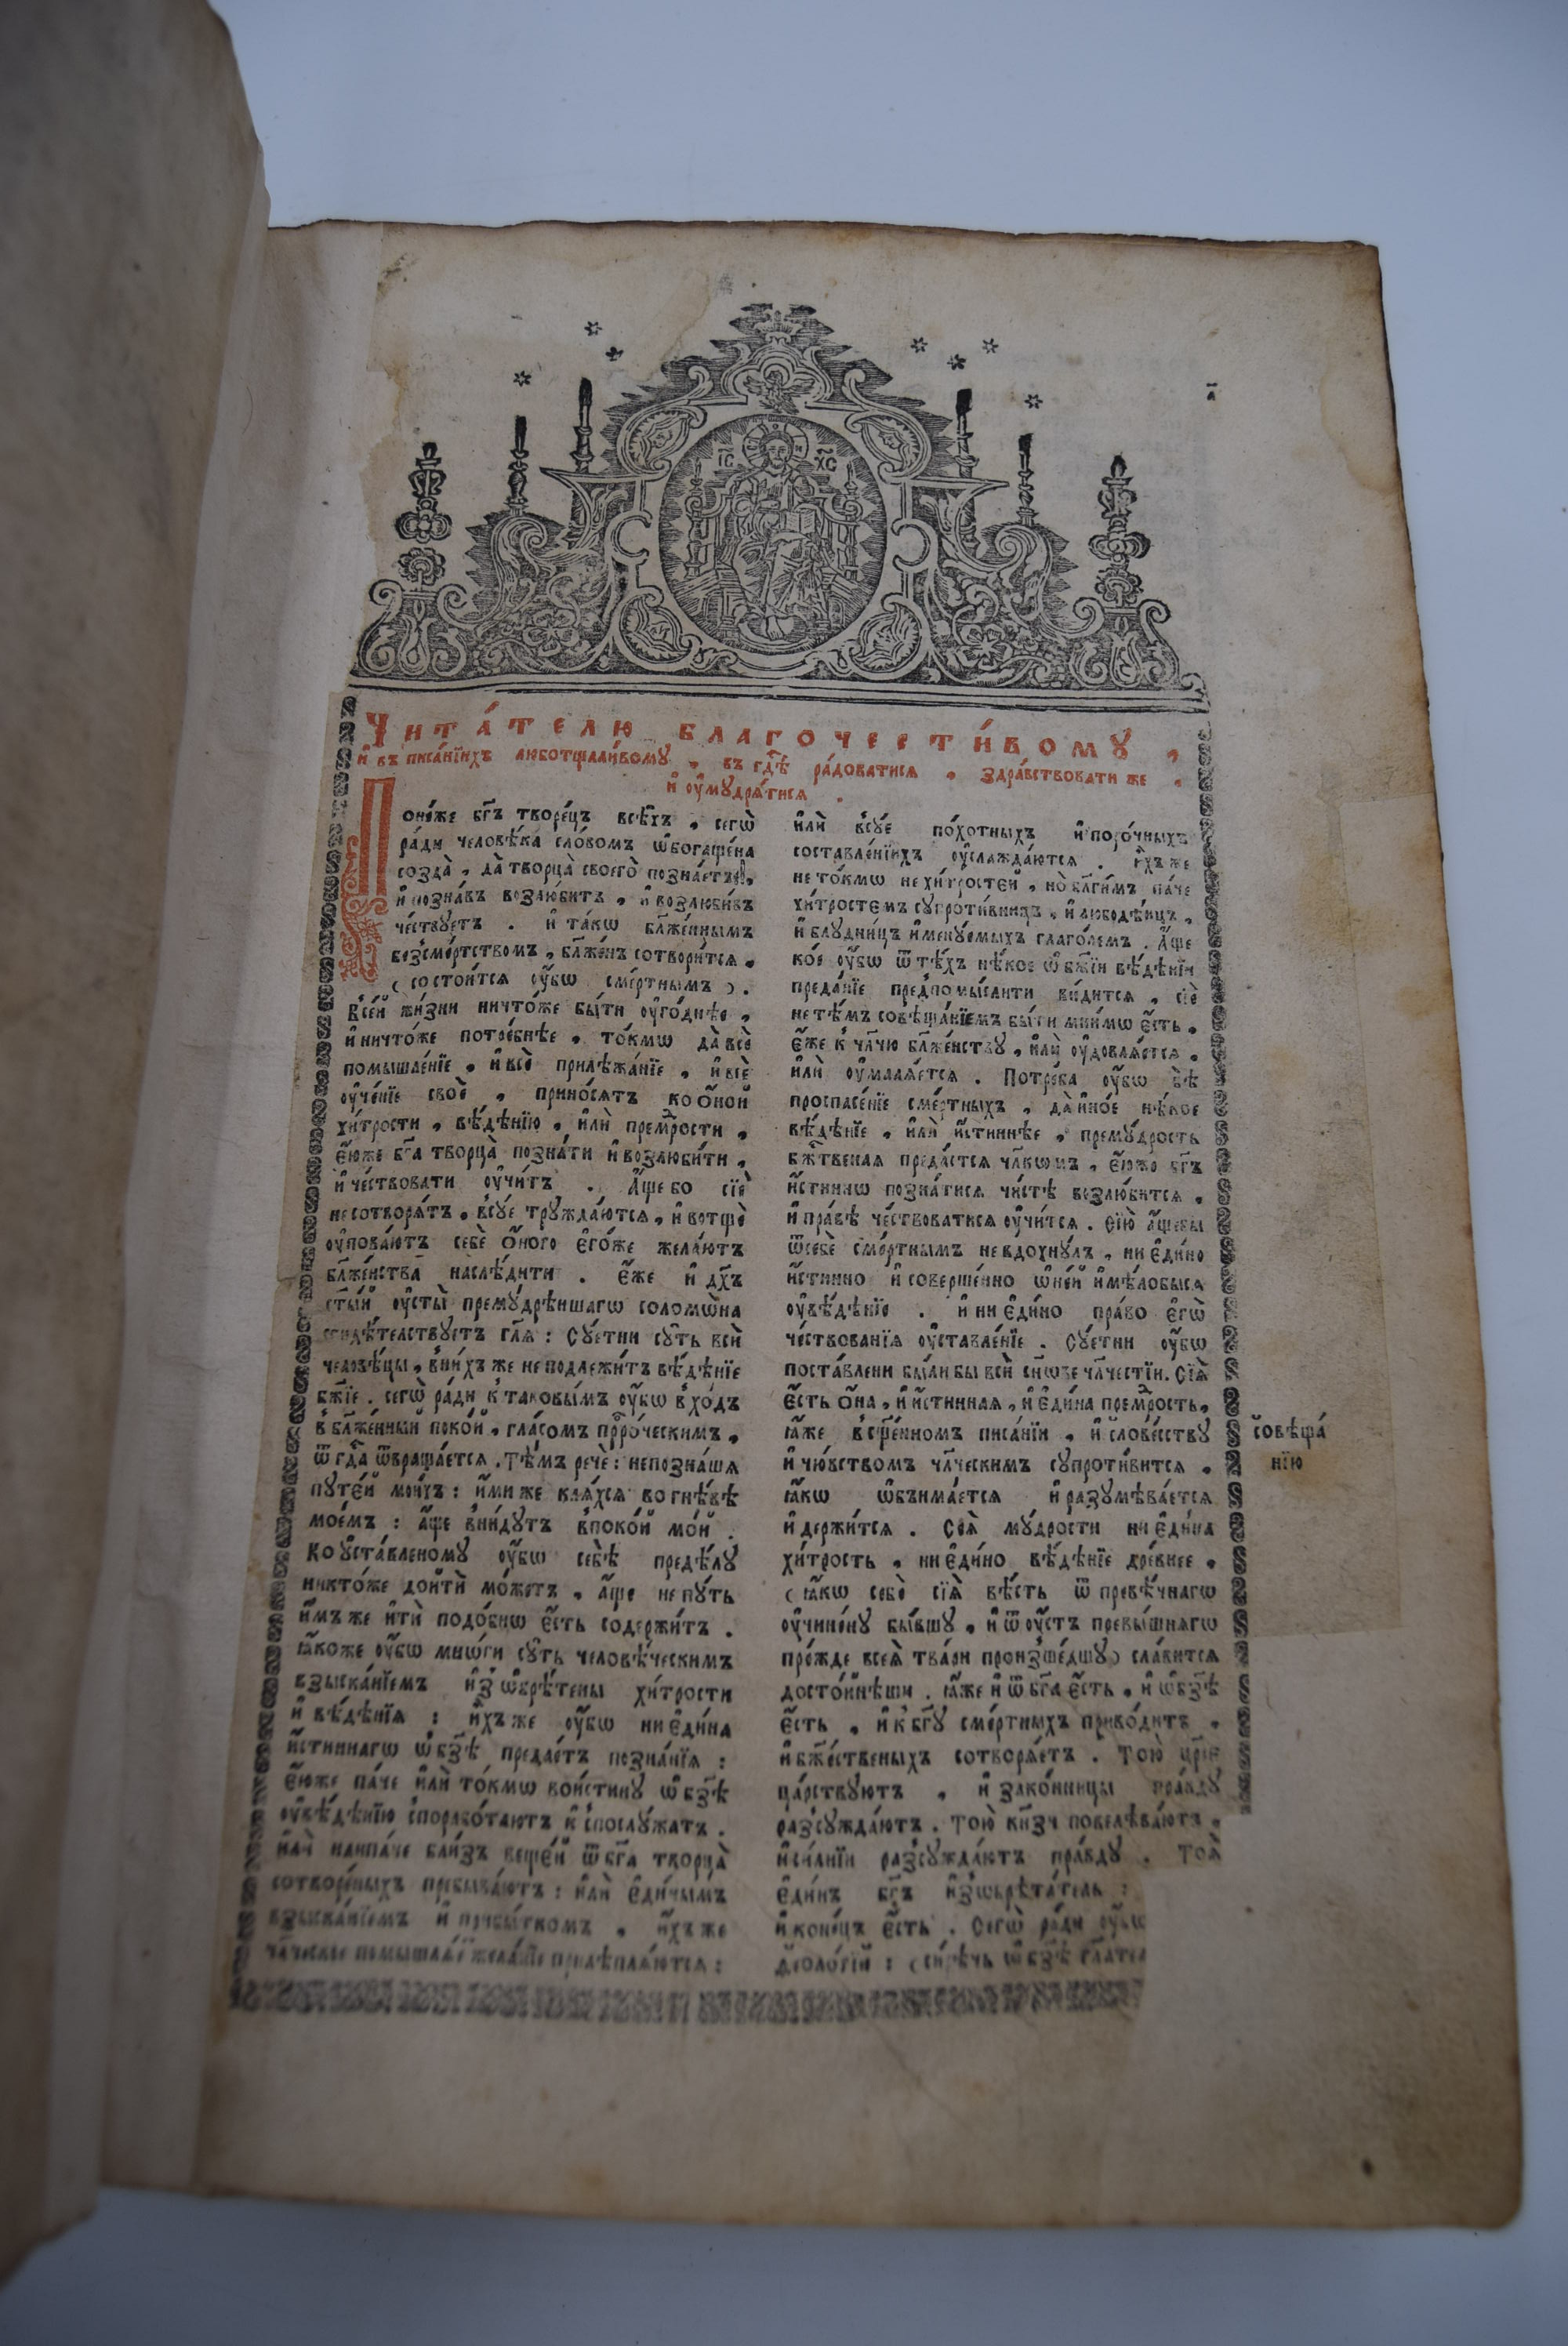 а҃
І҃С Х҃С
Чита́телю благочести́вому ,
и҆ въ писа́нїихъ люботщали́вому , въ гдⷭ҇ѣ ра́доватися , здра́вствовати же ,
и҆ оу҆мудря́тися .
Поне́же бг҃ъ творе́цъ всѣ́хъ , сегѡ̀
ра́ди человѣ́ка сло́вомъ ѡ҆богаще́на
созда̀ , да̀ творца̀ своего̀ позна́етъ ,
и҆ позна́въ возлю́битъ , и҆ возлюби́въ
че́ствуетъ . и҆ та́кѡ бл҃же́ннымъ
безсме́ртствомъ , бл҃же́нъ сотвори́тся ,
( состои́тся оу҆́бѡ сме́ртнымъ ) .
Все́й жи́зни ничто́же бы́ти оу҆го́днѣе ,
и҆ ничто́же потре́бнѣе , то́кмѡ да̀ всѐ
помышле́нїе , и҆ всѐ прилѣжа́нїе , и҆ всѐ
оу҆че́нїе своѐ , прино́сятъ ко о҆́ной
хи́трости , вѣ́дѣнїю , и҆лѝ премⷣрости ,
е҆́юже бг҃а творца̀ позна́ти и҆ возлюби́ти ,
и҆ че́ствовати оу҆чи́тъ . А҆́ще бо сїѐ
не сотворя́тъ , всу́е тружда́ются , и҆ вотщѐ
оу҆пова́ютъ себѐ о҆́ного е҆го́же жела́ютъ
бл҃же́нства наслѣ́дити . Е҆́же и҆ дх҃ъ
ст҃ы́й оу҆сты̀ прему́дрѣишагѡ соломѡ́на
свидѣ́телствуетъ гл҃я : Су́етни су́ть всѝ
человѣ́цы , в ни́хъ же не подлежи́тъ вѣ́дѣнїе
бж҃їе . сегѡ̀ ра́ди к таковы́мъ оу҆́бѡ вхо́дъ
в бл҃же́нный поко́й , гла́сомъ прⷪ҇ро́ческимъ ,
ѿ гдⷭ҇а ѿвраща́ется . Тѣ́мъ речѐ : не позна́шя
путе́й мои́хъ : и҆́ми же кля́хся во гнѣ́вѣ
мое́мъ : а҆́ще вни́дутъ в поко́й мо́й .
Ко уста́вленому оу҆́бѡ себѣ̀ предѣ́лу
никто́же доитѝ мо́жетъ , а҆́ще не пу́ть
и҆́мъ же итѝ подо́бнѡ е҆́сть содержи́тъ .
ꙗ҆́коже оу҆́бѡ мнѡ́ги су́ть человѣ́ческимъ
взыска́нїемъ и҆зѡбрѣ́тены хи́трости
и҆ вѣ́дѣнїя : и҆́хъ же оу҆́бѡ ни е҆ди́на
и҆́стиннагѡ ѡ҆ бз҃ѣ предае́тъ позна́нїя :
е҆́юже па́че и҆лѝ то́кмѡ вои́стину ѡ҆ бз҃ѣ
оу҆вѣ́дѣнїю спорабо́таютъ и҆ спослу́жатъ .
и҆лѝ наипа́че бли́зъ веще́й ѿ бг҃а творца̀
сотворе́ныхъ пребыва́ютъ : и҆лѝ е҆ди́нымъ
взыска́нїемъ и҆ прибы́ткомъ , и҆́хъ же
чл҃ческїе прилѣпля́ются :
и҆лѝ всу́е по́хотныхъ и҆ поро́чныхъ
составле́нїихъ оу҆слажда́ются . и҆́хъ же
не то́кмѡ не хи́тростей , но̀ бл҃ги́мъ па́че
хи́тростемъ супроти́вницъ , и҆ любодѣ́ицъ ,
и҆ блудни́цъ и҆мену́емыхъ глаго́лемъ . А҆́ще
ко́е оу҆́бѡ ѿ тѣ́хъ нѣ́кое ѡ҆ бж҃їи вѣ́дѣнїи
преда́нїе предпомы́слити ви́дится , сїѐ
не тѣ́мъ совѣща́нїемъ бы́ти мни́мѡ е҆́сть ,
е҆́же к чл҃чю бл҃же́нству , и҆лѝ оу҆довля́ется ,
и҆лѝ оу҆маля́ется . Потре́ба оу҆́бѡ бѣ̀
про спасе́нїе сме́ртныхъ , да̀ ино́е нѣ́кое
вѣ́дѣнїе , и҆лѝ и҆́стиннѣе , прему́дрость
бжⷭ҇твеная преда́стся чл҃кѡмъ , е҆́юже бг҃ъ
и҆́стиннѡ позна́тися чи́стѣ возлю́бится ,
и҆ пра́вѣ че́ствоватися оу҆чи́тся . Сїю̀ а҆́щебы
ѿ себѐ сме́ртнымъ не вдохну́лъ , ни е҆ди́но
и҆́стинно и҆ соверше́нно ѡ҆ не́й и҆мѣ́лобыся
оу҆вѣ́дѣнїе . и҆ ни е҆ди́но пра́во е҆гѡ̀
че́ствованїя оу҆ставле́нїе . Су́етни оу҆́бѡ
поста́влени бы́ли бы всѝ сн҃ѡве чл҃честїи . Сїя̀
е҆́сть о҆́на , и҆ и҆́стинная , и҆ е҆ди́на премⷣрость ,
ꙗ҆́же в сщ҃е́нномъ писа́нїи , и҆ слове́сству
и҆ чю́вствомъ чл҃ческимъ супроти́вится ,
ꙗ҆́кѡ ѡ҆б̾има́ется и҆ разумѣва́ется
и҆ держи́тся . Сея̀ му́дрости ни е҆ди́на
хи́трость , ни е҆ди́но вѣ́дѣнїе дре́внее ,
( ꙗ҆́кѡ себѐ сїя̀ вѣ́сть ѿ превѣ́чнагѡ
оу҆чине́ну бы́вшу , и҆ ѿ оу҆́стъ превы́шнягѡ
пре́жде всея̀ тва́ри произше́дшу ) сла́вится
досто́йнѣши . ꙗ҆́же и҆ ѿ бг҃а е҆́сть , и҆ ѡ҆ бз҃ѣ
е҆́сть , и҆ к бг҃у сме́ртныхъ приво́дитъ ,
и҆ бже́ственыхъ сотворя́етъ . То́ю цр҃їе
ца́рствуютъ , и҆ зако́нницы пра́вду
разсужда́ютъ . То́ю кн҃зи повелѣва́ютъ ,
и҆ си́лнїи разсужда́ютъ пра́вду . Тоя̀
е҆ди́нъ бг҃ъ и҆зѡбрѣта́тель :
и҆ коне́цъ е҆́сть . Сегѡ̀ ра́ди оу҆́бѡ
ѳеоло́гїи : ( си́рѣчь ѡ҆ бз҃ѣ
совѣща́
нїю